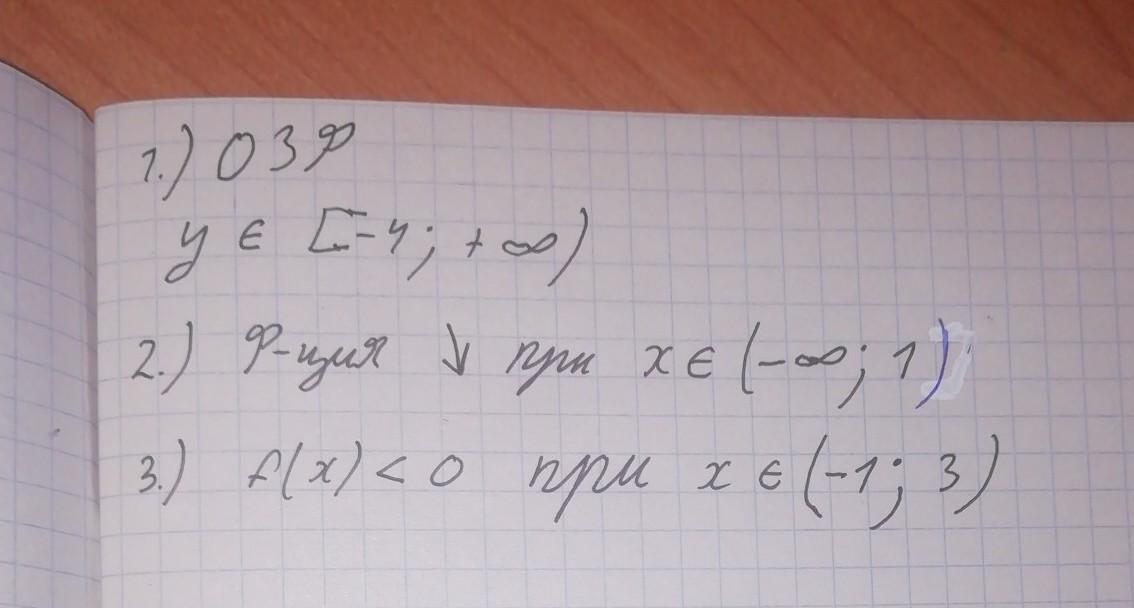 1.) ОЗФ
y ∈ [-4; +∞)
2.) Ф-ция ↓ при x ∈ (-∞; 1)
3.) f(x) < 0 при x ∈ (-1; 3)